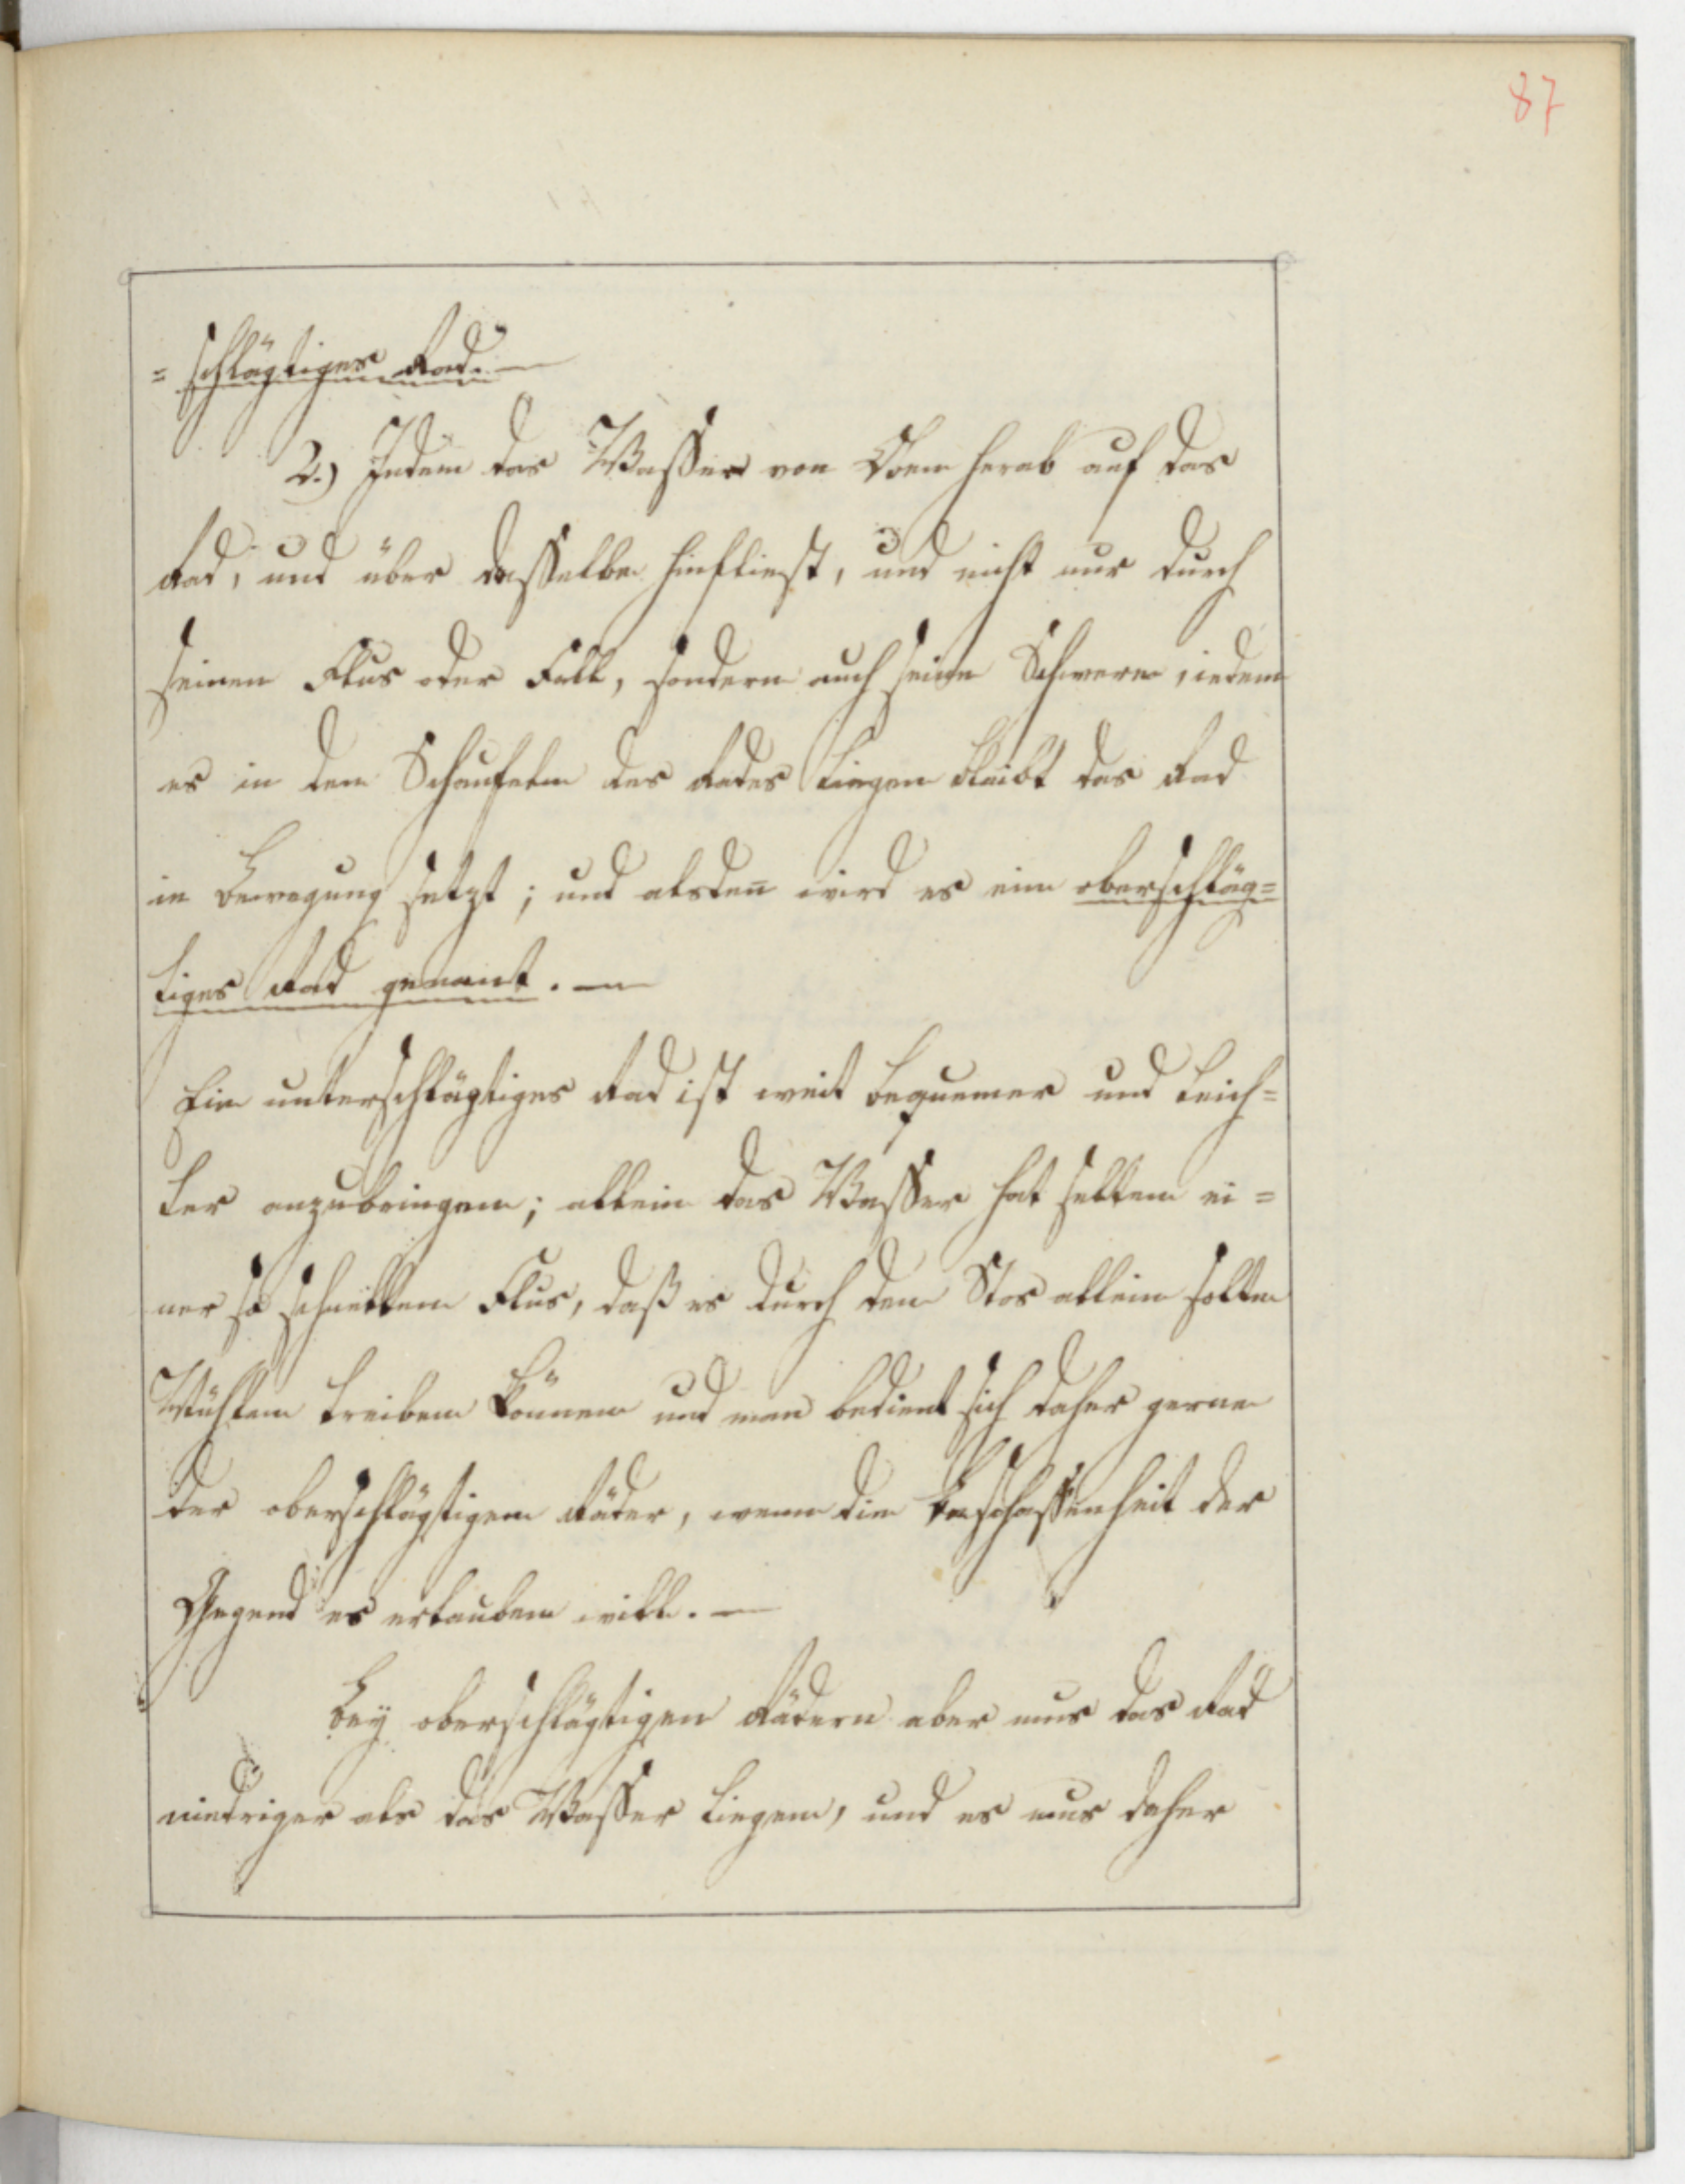 87
= schlägtiges Rad. —
2.) Indem das Wasser von Oben herab auf das
Rad, und über dasselbe hinfliest, und nicht nur durch
seinen Flus oder Fall, sondern auch seine Schwere, indem
es in den Schaufeln des Rades liegen bleibt das Rad
in Bewegung setzt; und alsdeñ wird es ein oberschläg=
tiges Rad genant. —
Ein unterschlägtiges Rad ist weit bequemer und leich=
ter anzubringen; allein das Wasser hat selten ei=
nen so schnellen Flus, daß es durch den Stos allein solte
Mühlen treiben können und man bedient sich daher gerne
der oberschlägtigen Räder, wenn die Beschaffenheit der
Gegend es erlauben will. —
Bey oberschlägtigen Rädern aber mus das Rad
niedriger als das Wasser liegen, und es mus daher